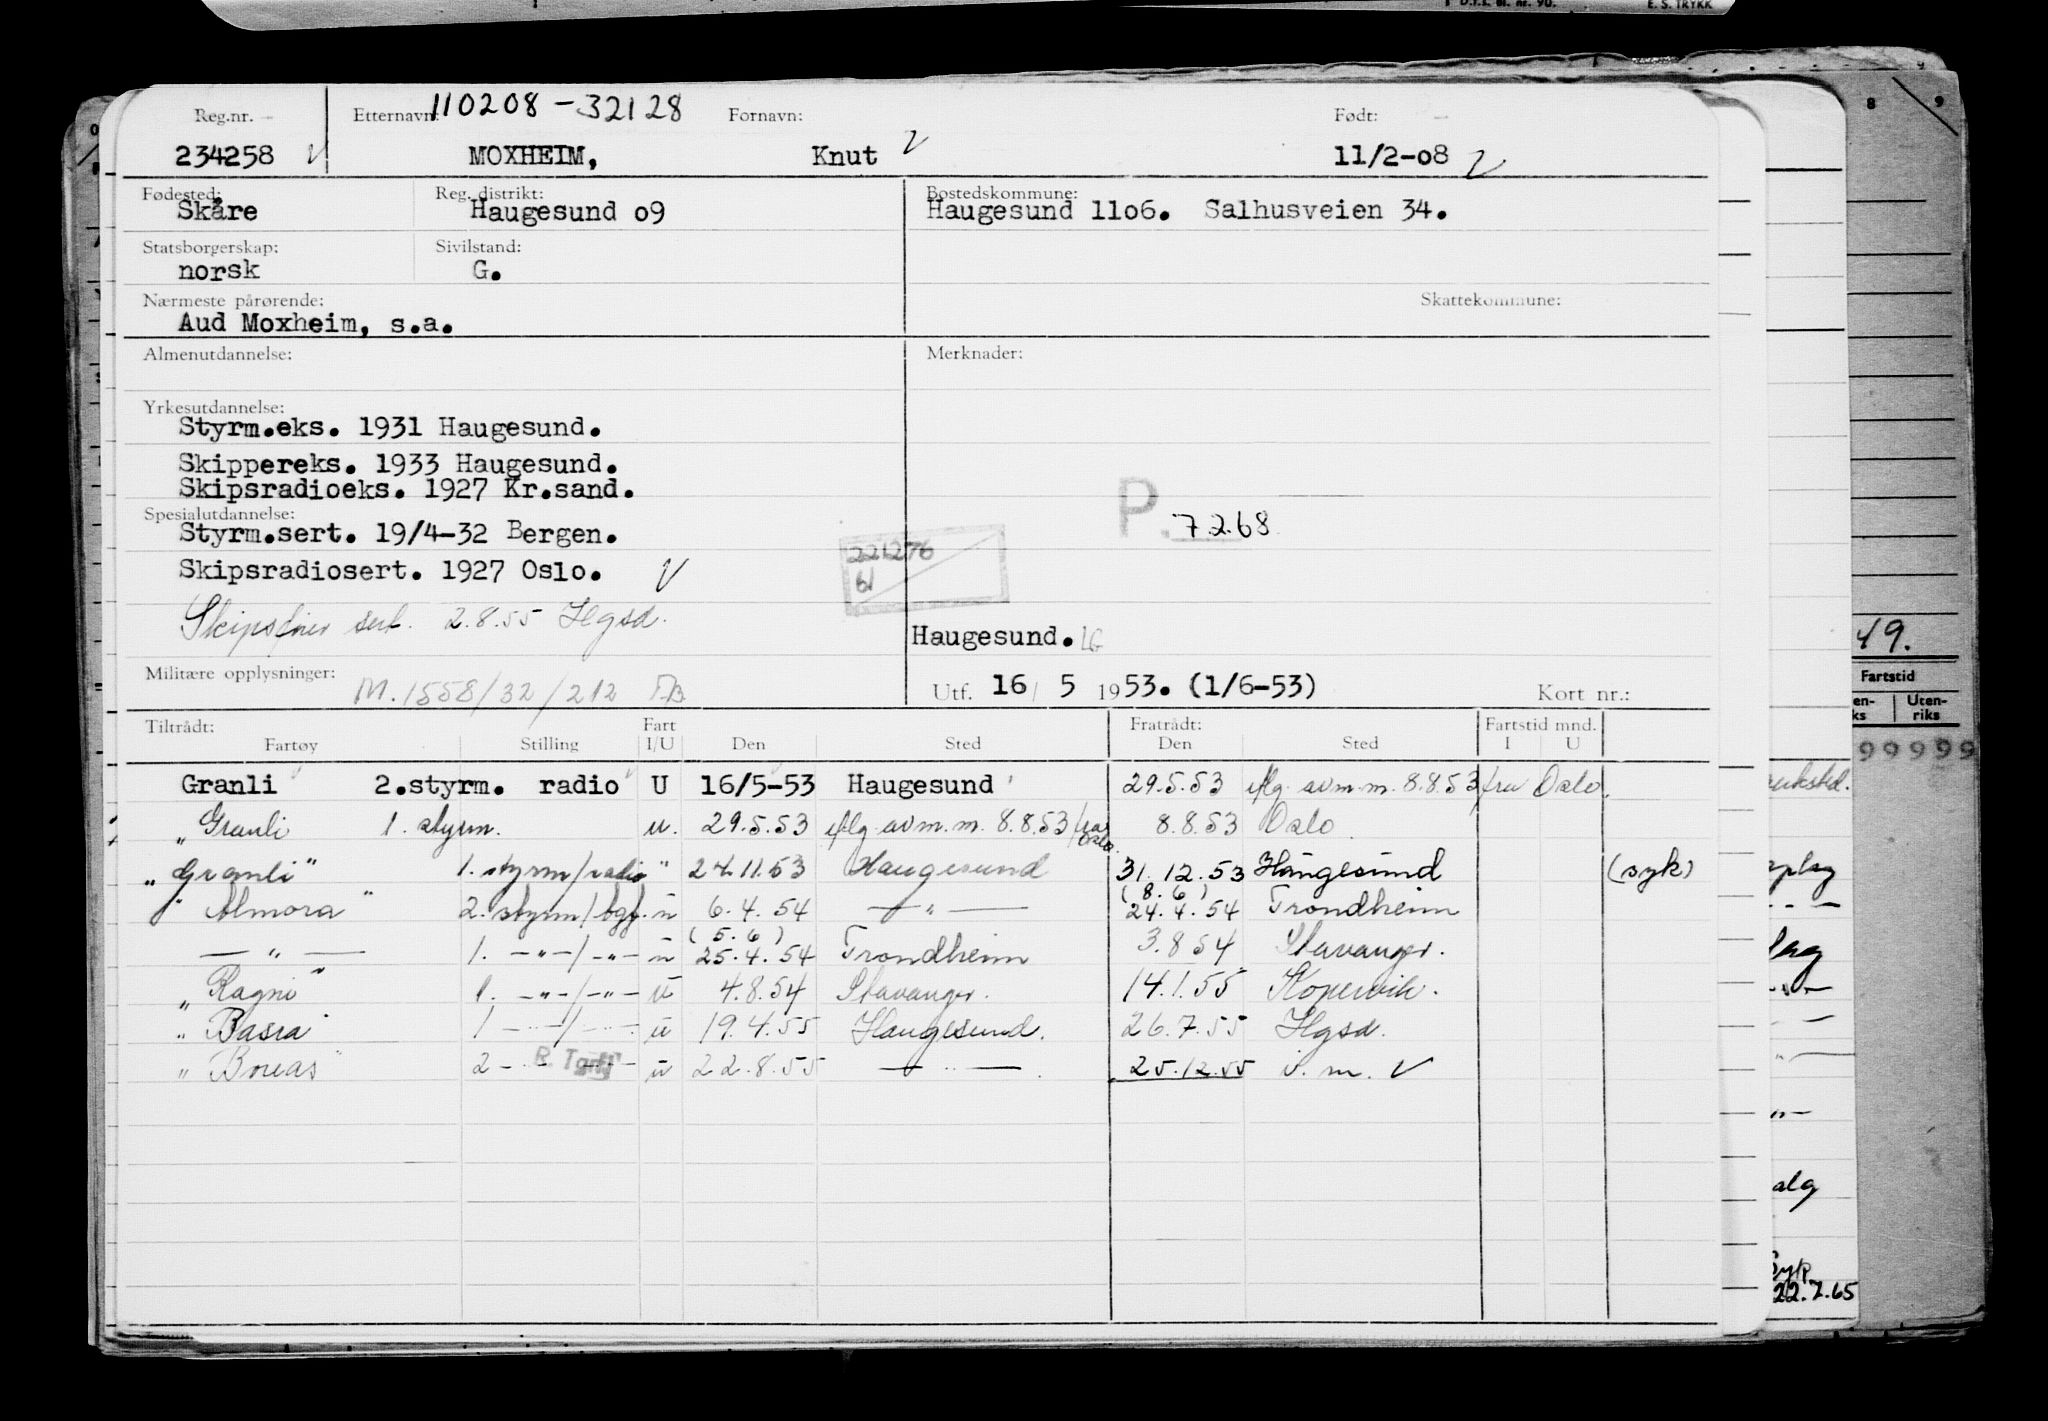 D.f.L. Bl. nr. 90. E. S. TRYKK
Reg.nr. Etternavn: 110208-32128 Fornavn: Født:
234258 MOXHEIM, Knut 11/2-o8
Fødested: Reg. distrikt: Bostedskommune:
Skåre Haugesund o9 Haugesund 11o6. Salhusveien 34.
Statsborgerskap: Sivilstand:
norsk G.
Nærmeste pårørende: Skattekommune:
Aud Moxheim, s.a.
Almenutdannelse: Merknader:
Yrkesutdannelse:
Styrm.eks. 1931 Haugesund.
Skippereks. 1933 Haugesund.
Skipsradioeks. 1927 Kr.sand.
Spesialutdannelse:
P. 7.2.68
Styrm.sert. 19/4-32 Bergen.
221276
61
Skipsradiosert. 1927 Oslo.
Skipsfører sert. 2.8.55 Hgsd.
Haugesund. LG
Militære opplysninger: M.1558/32/212
Utf. 16/ 5 1953. (1/6-53) Kort nr.:
Tiltrådt: Fart Fratrådt: Fartstid mnd.
Fartøy Stilling I/U Den Sted Den Sted I U
Granli 2.styrm. radio U 16/5-53 Haugesund 29.5.53 iflg. avm.m. 8.8.53 fra Oslo.
"Granli 1. styrm. u. 29.5.53 iflg. avm.m. 8.8.53 fra Oslo. 8.8.53 Oslo
"Granli" 1. styrm/radio " 24.11.53 Haugesund 31.12.53 Haugesund (syk)
"Almora" 2. styrm/tgf. u 6.4.54 — " — (8.6) 24.4.54 Trondheim
— " — 1. -"-/-"- u (5.6) 25.4.54 Trondheim 3.8.54 Stavanger.
"Ragni" 1. -"-/-"- u 4.8.54 Stavanger. 14.1.55 Kopervik.
"Basra" 1 -"-/-"- u 19.4.55 Haugesund. 26.7.55 Hgsd.
"Boreas" 2 -"- u 22.8.55 — " — . 25.12.55 i.m.
8 9
49.
Fartstid
Uten-
riks
99999
Syk
22.7.65